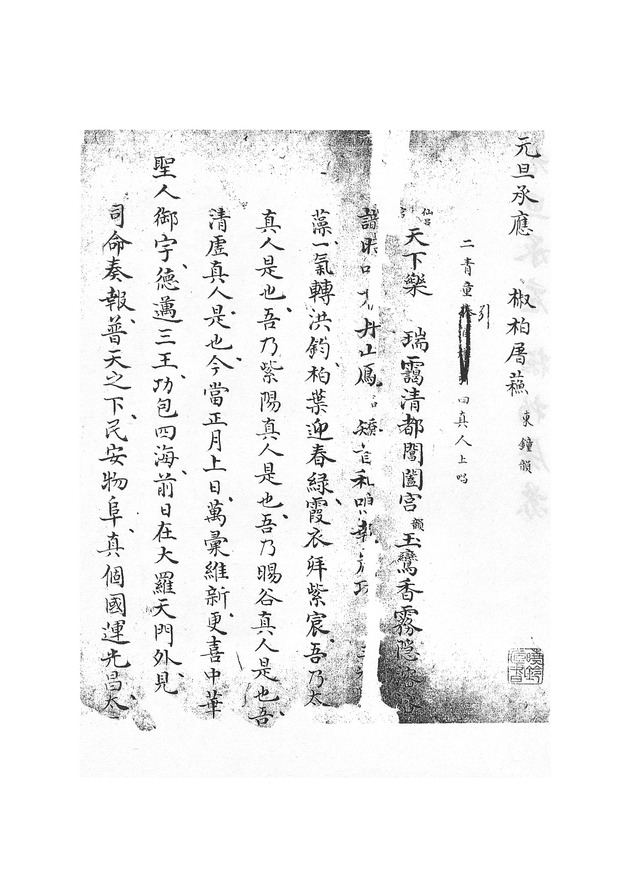 元旦承應 椒柏屠蘇 東鐘韻
二青童引 四真人上唱
仙呂
天下樂 瑞靄清都閶闔宮韻玉鸞香霧隱
丹
藻一氣轉洪鈞柏葉迎春綠霞衣拜紫宸吾乃太
真人是也吾乃紫陽真人是也吾乃暘谷真人是也吾
清虛真人是也今當正月上日萬彙維新更喜中華
聖人御宇德邁三王功包四海前日在大羅天門外見
司命奏報普天之下民安物阜真個國運光昌太